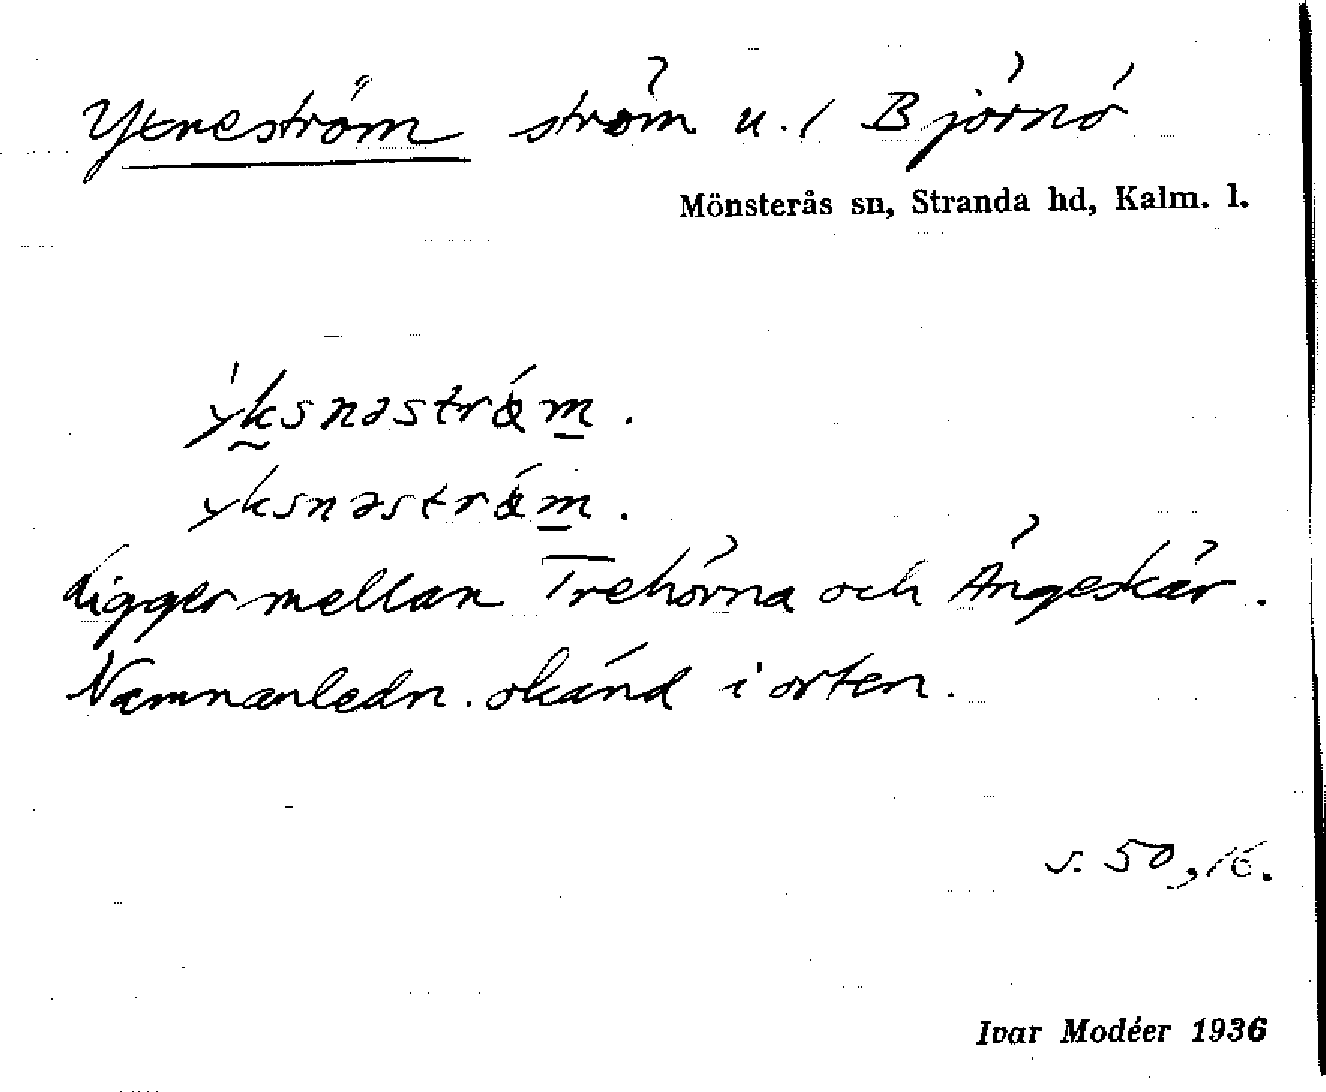 Yxneström ström u. / Björnö
Mönsterås sn, Stranda hd, Kalm. l.
ýksnəström.
yksnəström.
Ligger mellan Trehörna och Ängeskär.
Namnanledn. okänd i orten.
s. 50, 16.
Ivar Modéer 1936